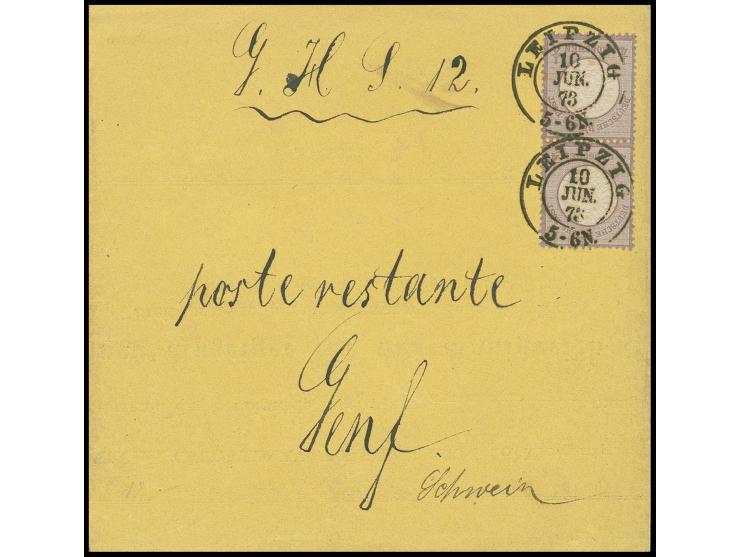 G. H S. 12.
LEIPZIG
10
JUN.
73
5-6N.
LEIPZIG
10
JUN.
73
5-6N.
poste restante
Genf.
Schweiz